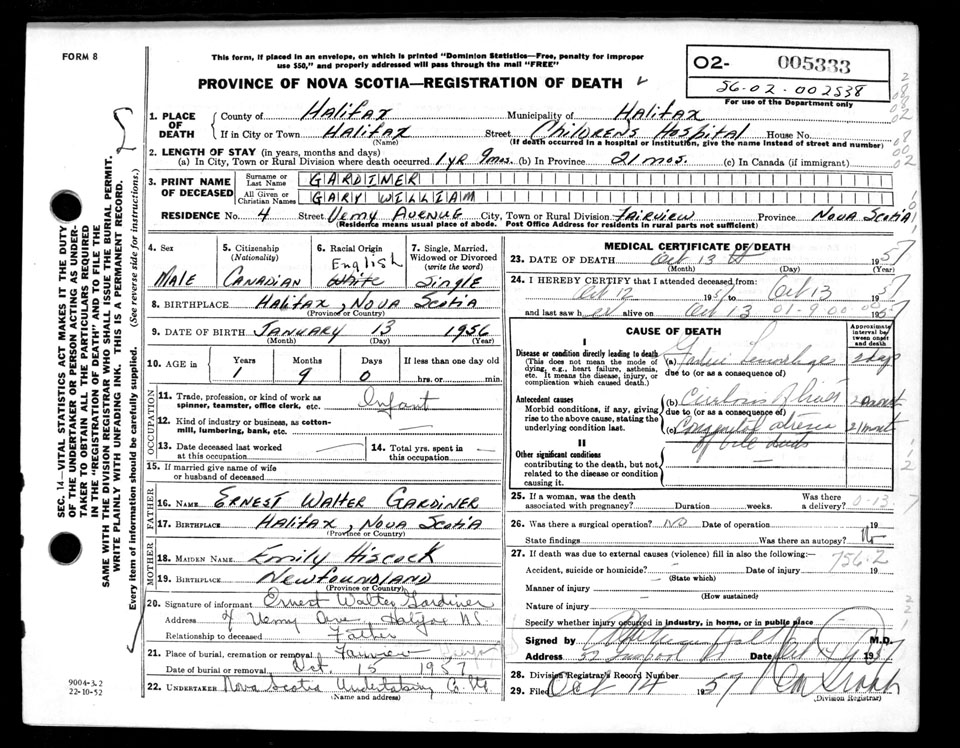 FORM 8
This form, if placed in an envelope, on which is printed "Dominion Statistics—Free, penalty for improper
use $50," and properly addressed will pass through the mail "FREE"
PROVINCE OF NOVA SCOTIA—REGISTRATION OF DEATH
O2- 005333
56-02-002538
For use of the Department only
1. PLACE OF DEATH
County of Halifax Municipality of Halifax
If in City or Town Halifax Street Childrens Hospital House No.
(Name) (If death occurred in a hospital or institution, give the name instead of street and number)
2. LENGTH OF STAY (in years, months and days)
(a) In City, Town or Rural Division where death occurred 1 yr 9 mos. (b) In Province 21 mos. (c) In Canada (if immigrant)
3. PRINT NAME OF DECEASED
Surname or Last Name GARDINER
All Given or Christian Names GARY WILLIAM
RESIDENCE No. 4 Street Vemy Avenue City, Town or Rural Division Fairview Province Nova Scotia
(Residence means usual place of abode. Post Office Address for residents in rural parts not sufficient)
4. Sex
Male
5. Citizenship (Nationality)
Canadian
6. Racial Origin
English
White
7. Single, Married, Widowed or Divorced (write the word)
Single
8. BIRTHPLACE Halifax, Nova Scotia
(Province or Country)
9. DATE OF BIRTH January 13 1956
(Month) (Day) (Year)
10. AGE in Years Months Days If less than one day old
1 9 0 hrs. or min.
OCCUPATION
11. Trade, profession, or kind of work as spinner, teamster, office clerk, etc. Infant
12. Kind of industry or business, as cotton-mill, lumbering, bank, etc.
13. Date deceased last worked at this occupation
14. Total yrs. spent in this occupation
15. If married give name of wife or husband of deceased
FATHER
16. NAME Ernest Walter Gardiner
17. BIRTHPLACE Halifax, Nova Scotia
(Province or Country)
MOTHER
18. MAIDEN NAME Emily Hiscock
19. BIRTHPLACE Newfoundland
(Province or Country)
20. Signature of informant Ernest Walter Gardiner
Address 4 Vemy Ave, Halifax NS.
Relationship to deceased Father
21. Place of burial, cremation or removal Fairview
Date of burial or removal Oct. 15 1957
22. UNDERTAKER Nova Scotia Undertaking Co. Ltd
(Name and address)
MEDICAL CERTIFICATE OF DEATH
23. DATE OF DEATH Oct 13th 1957
(Month) (Day) (Year)
24. I HEREBY CERTIFY that I attended deceased from:
Oct 12 1957 to Oct 13 1957
and last saw h alive on Oct 13 1957
CAUSE OF DEATH
Approximate interval between onset and death
I
Disease or condition directly leading to death
(This does not mean the mode of dying, e.g., heart failure, asthenia, etc. It means the disease, injury, or complication which caused death.)
(a) Gastric Hemorrhages 2 days
due to (or as a consequence of)
Antecedent causes
Morbid conditions, if any, giving rise to the above cause, stating the underlying condition last.
(b) Cirrhosis
due to (or as a consequence of)
(c) Congenital atresia of bile ducts 21 months
II
Other significant conditions
contributing to the death, but not related to the disease or condition causing it.
25. If a woman, was the death associated with pregnancy? Duration weeks. Was there a delivery?
26. Was there a surgical operation? No Date of operation 19
State findings Was there an autopsy? No
27. If death was due to external causes (violence) fill in also the following:— 756.2
Accident, suicide or homicide? Date of injury 19
(State which)
Manner of injury
(How sustained)
Nature of injury
Specify whether injury occurred in industry, in home, or in public place
Signed by M.D.
Address Date Oct 14 1957
28. Division Registrar's Record Number
29. Filed Oct 14 1957
(Division Registrar)
SEC. 14—VITAL STATISTICS ACT MAKES IT THE DUTY
OF THE UNDERTAKER OR PERSON ACTING AS UNDER-
TAKER TO OBTAIN ALL THE PARTICULARS REQUIRED
IN THE "REGISTRATION OF DEATH" AND TO FILE THE
SAME WITH THE DIVISION REGISTRAR WHO SHALL ISSUE THE BURIAL PERMIT.
WRITE PLAINLY WITH UNFADING INK. THIS IS A PERMANENT RECORD.
Every item of information should be carefully supplied. (See reverse side for instructions.)
9004-3.2
22-10-52